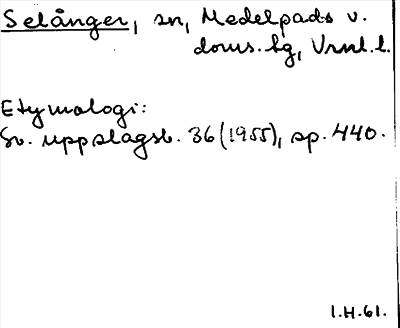 Selånger, sn, Medelpads v.
doms.hg, Vrnl.l.
Etymologi:
Sv. uppslagsb. 36 (1955), sp. 440.
I.H.61.